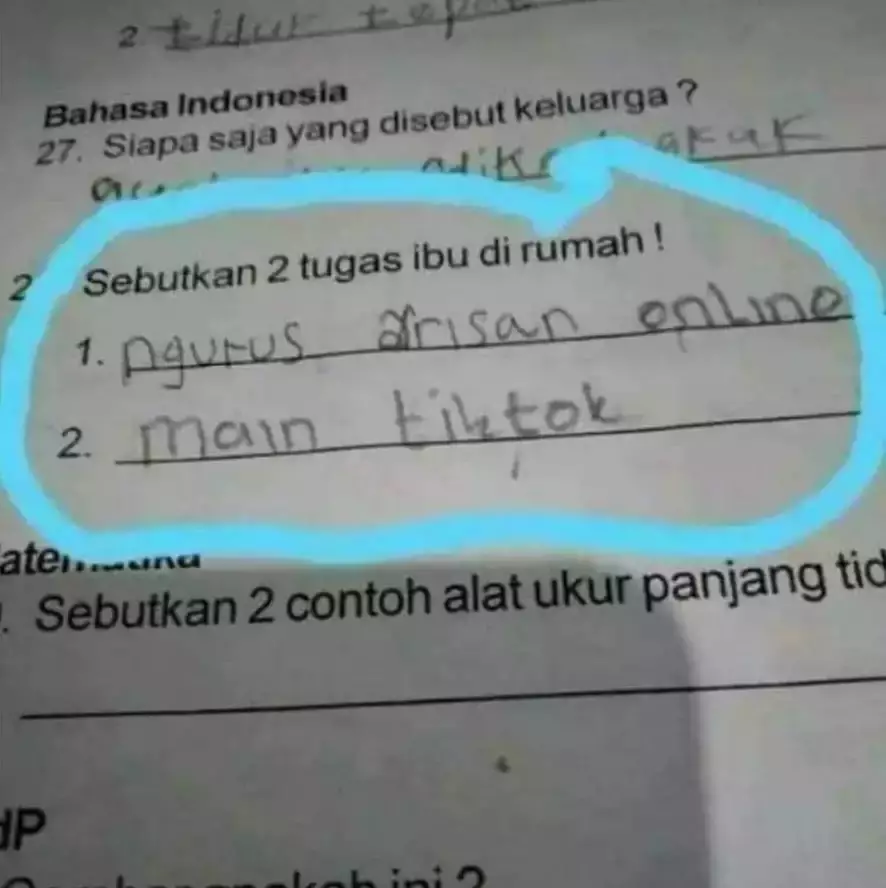 2. tidur
Bahasa Indonesia
27. Siapa saja yang disebut keluarga ?
akak
2 Sebutkan 2 tugas ibu di rumah !
1. ngurus arisan online
2. main tiktok
. Sebutkan 2 contoh alat ukur panjang
ini ?